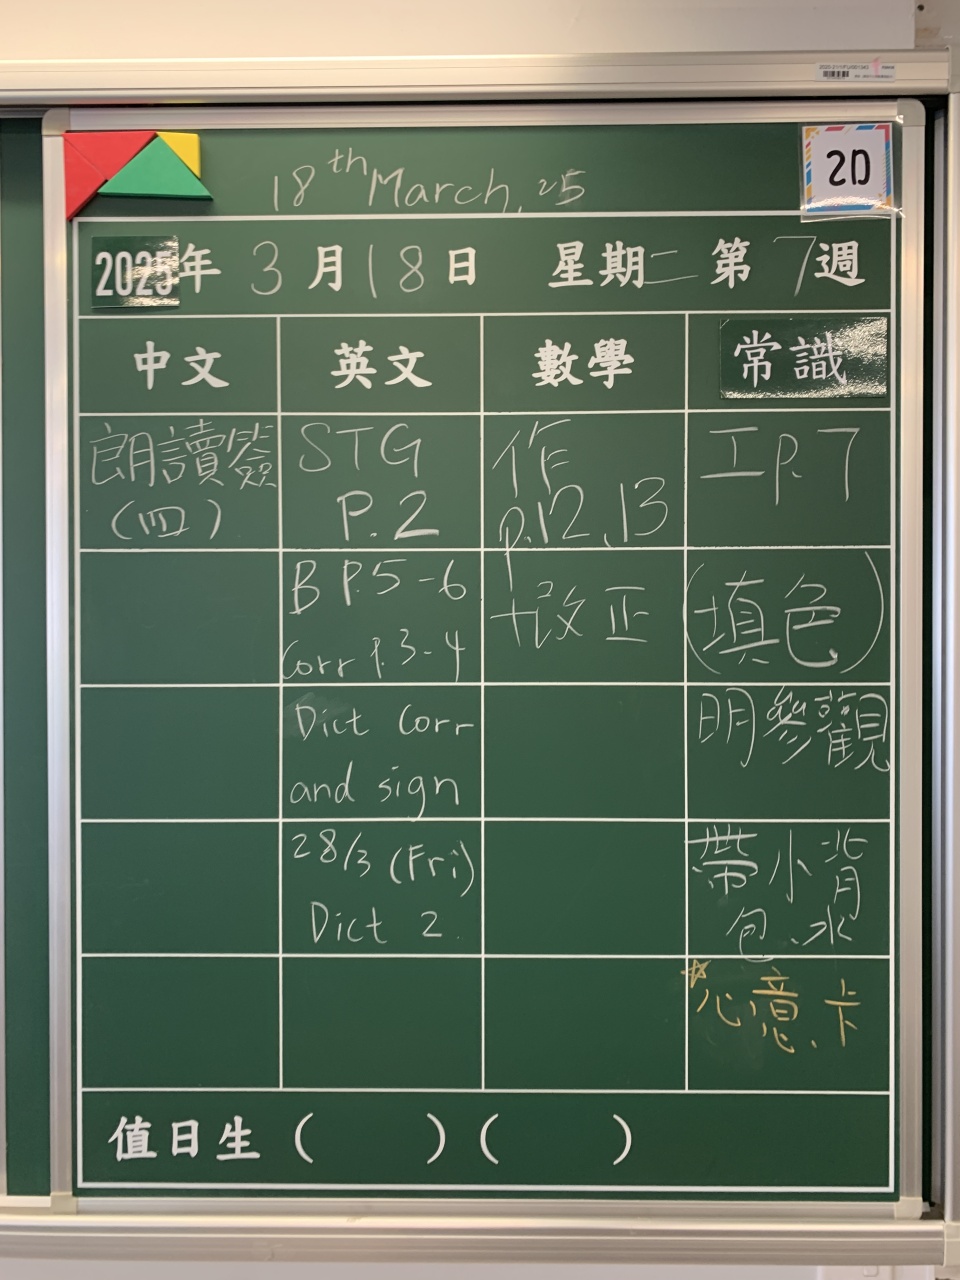 18th March, 25
2D
2025年 3月18日 星期二 第7週
中文 英文 數學 常識
朗讀簽
(四)
STG
P.2
B P.5-6
Corr P.3-4
Dict Corr
and sign
28/3 (Fri)
Dict 2.
作
p.12、13
+改正
工P.7
(填色)
明參觀
帶小背
包、水
*心意卡
值日生 ( ) ( )